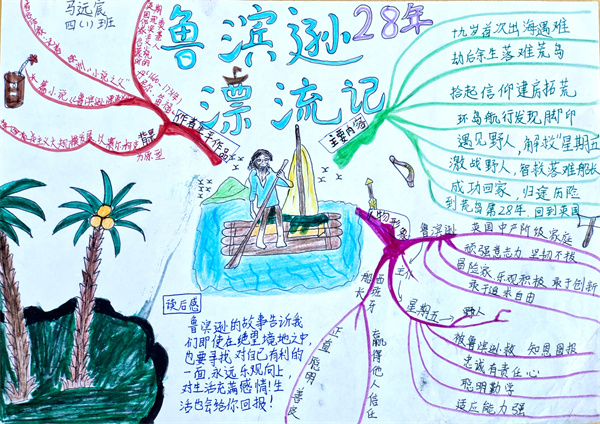 马远宸
四(1)班
鲁滨逊
漂流记
28年
作者生平作品
背景
主要内容
十九岁首次出海遇难
劫后余生落难荒岛
拾起信仰建房拓荒
环岛航行发现脚印
遇见野人,解救"星期五
激战野人,智救落难船长
成功回家,归途历险
到荒岛第28年,回到英国
人物形象
鲁滨逊
英国中产阶级家庭
顽强意志力 坚韧不拔
冒险家 乐观积极 敢于创新
敢于追求自由
星期五
野人
被鲁滨逊救 知恩图报
忠诚有责任心
聪明勤学
适应能力强
西班牙
船长
正直 聪明 善良
赢得他人信任
读后感
鲁滨逊的故事告诉我
们即使在绝望境地之中,
也要寻找对自己有利的
一面,永远乐观向上,
对生活充满感情!生
活也会给你回报!